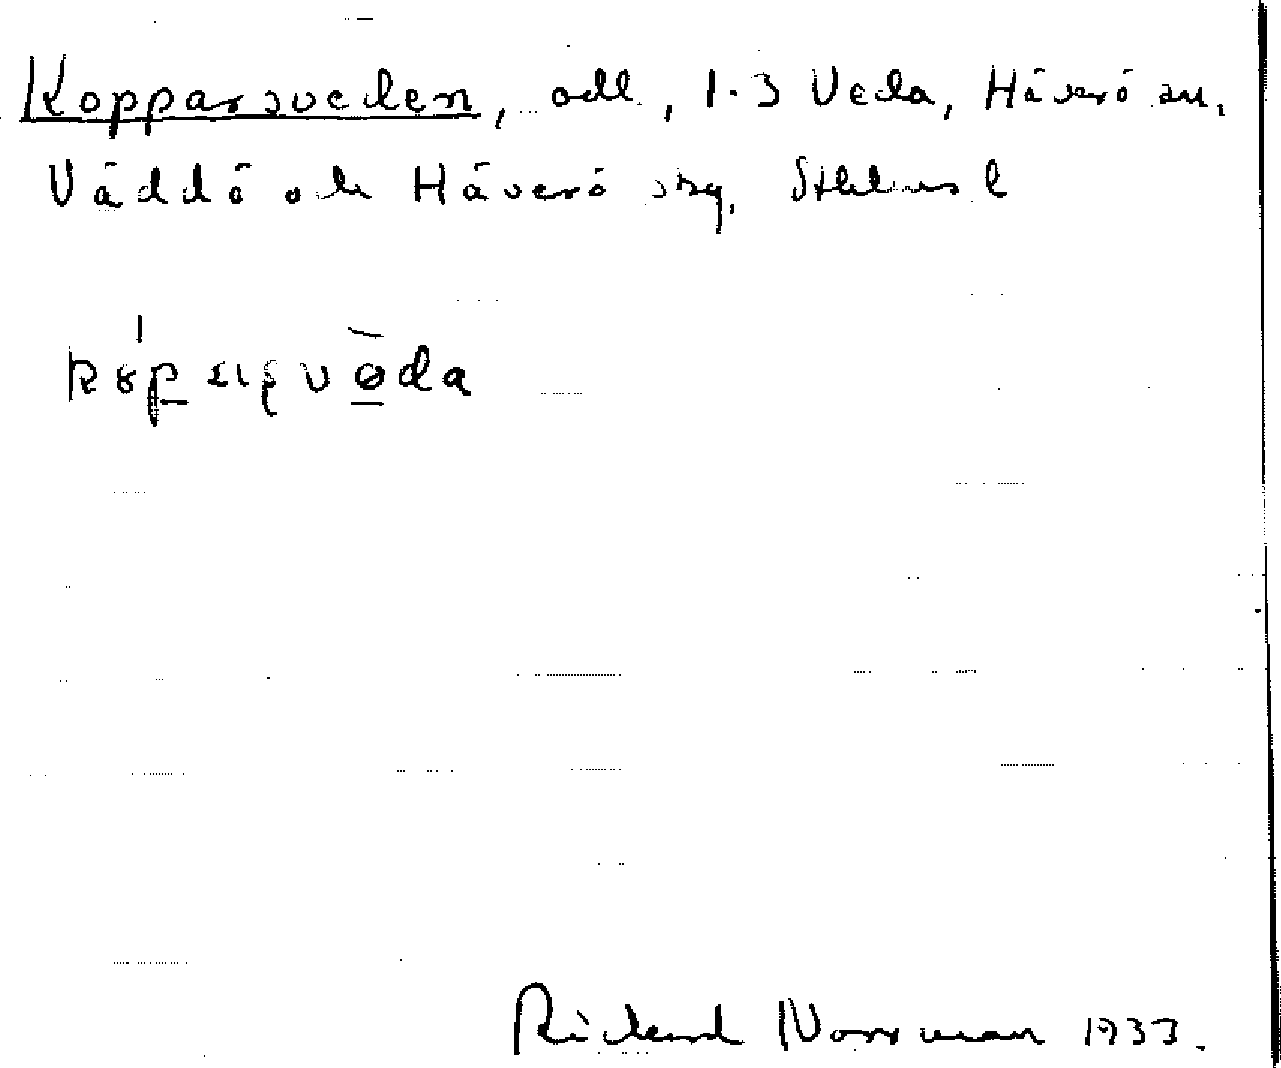 Kopparsveden, odl., 1.3 Veda, Häverö sn,
Väddö och Häverö skg, Sthlms l
Rickard Norrman 1933.